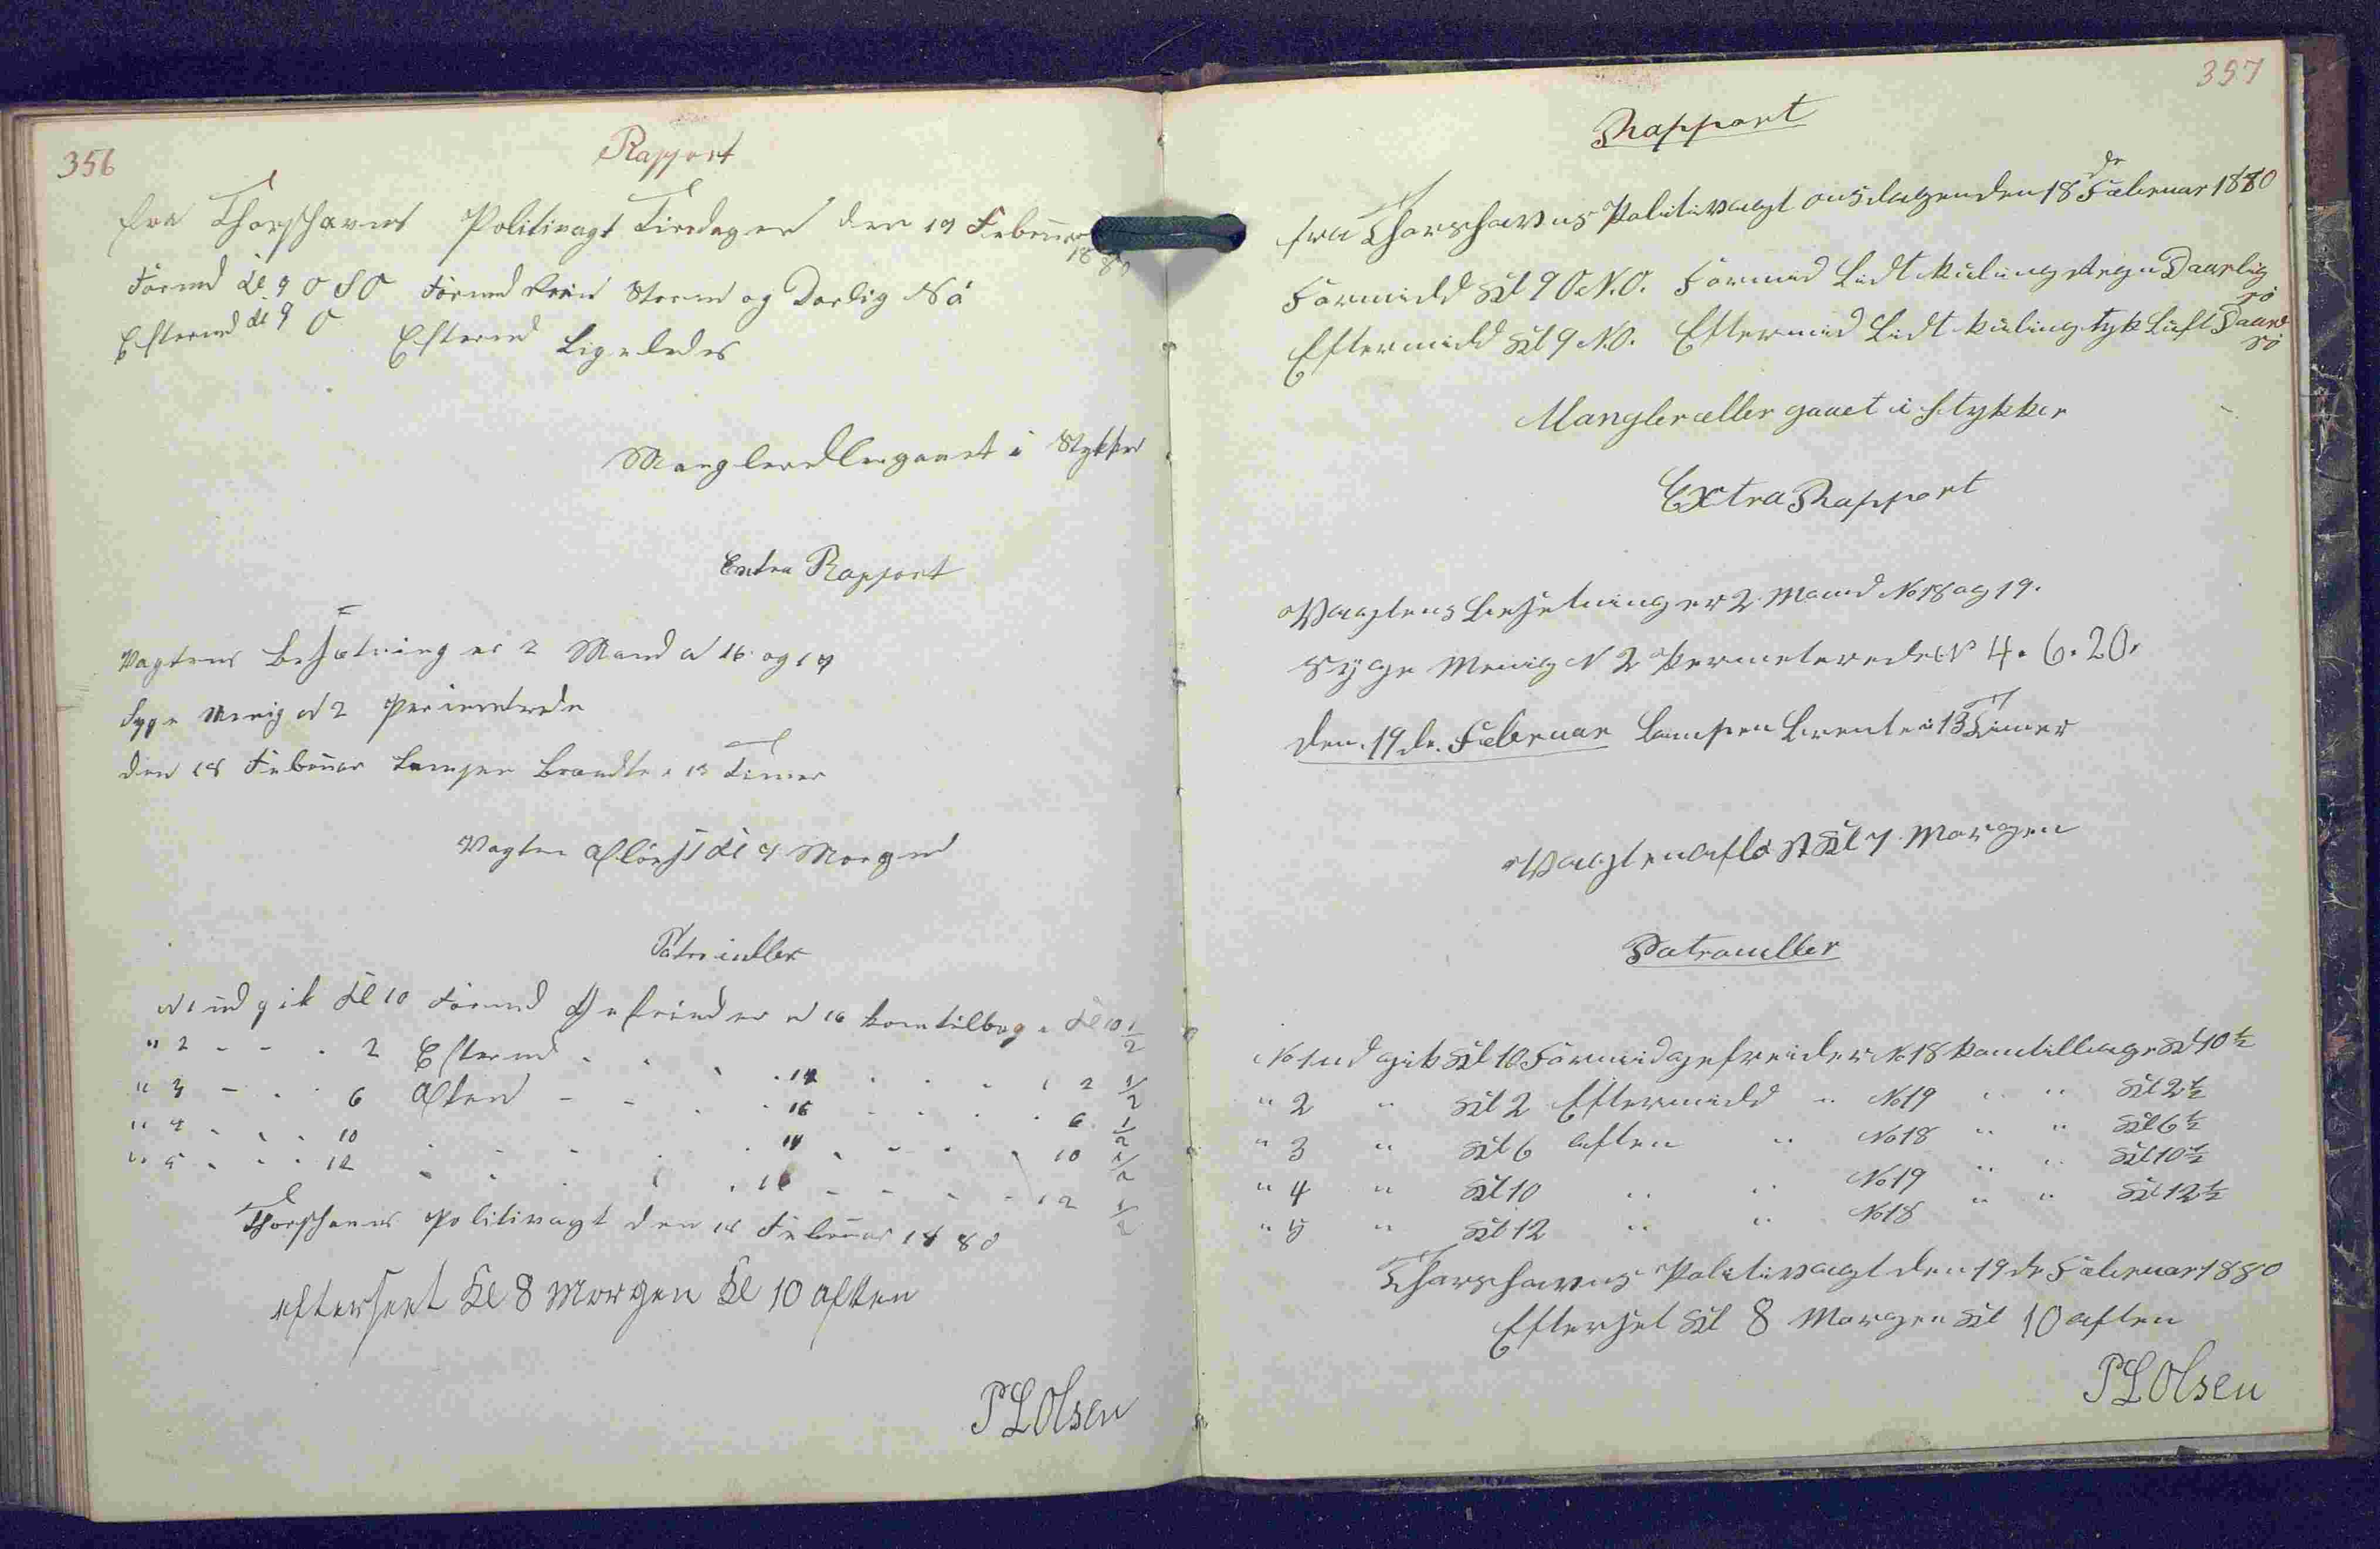 356
Rapport
fra Thorshavns Politivagt Tirsdagen den 17 Februar
1880
Formd Kl 9 O S O Formd Storm og Darlig Sö
Eftermd Kl 9 O Eftermd Ligeledes
Mangler eller gaaet i Stykker
Extra Rapport
Vagtens Besætning er 2 Mand N 16 og 17
Syge Menig N 2
den 18 Februar Lampen Brændte i 13 Timer
Vagten Aflöst Kl 9 Morgen
Patrouller
N 1 ud gik Kl 10 Formd Gefreider N 16 kom tilbage Kl 10 1/2
" 2 - - - 2 Eftermd - - - 17 - - - 2 1/2
" 3 - - - 6 Aften - - - 16 - - - 6 1/2
" 4 - - - 10 - - - - 17 - - - 10 1/2
" 5 - - - 12 - - - - 16 - - - 12 1/2
Thorshavns Politivagt den 18 Februar 1880
efterseet Kl 8 Morgen Kl 10 aften
P L Olsen
357
Rapport
fra Thorshavns Politivagt onsdagen den 18 de Februar 1880
Formidd Kl 9 O.N.O. Formid Lidt kuling Regn Daarlig
sö
Eftermidd Kl 9 N.O. Eftermid Lidt kuling tyk Luft Daarl
sö
Mangler eller gaaet i Stykker
Extra Rapport
Vagtens Besetning er 2 Mand No 18 og 19.
Syge Menig N 2 Permeterede N 4. 6. 20.
den. 19 de. Februar Lampen Brente i 13 Timer
Vagten aflöst Kl 7 Morgen
Patrouller
No 1 ud gik Kl 10 Formid gefreider No 18 kom tilbage Kl 10 1/2
" 2 " Kl 2 Eftermidd " No 19 " " Kl 2 1/2
" 3 " Kl 6 aften " No 18 " " Kl 6 1/2
" 4 " Kl 10 " " No 19 " " Kl 10 1/2
" 5 " Kl 12 " " No 18 " " Kl 12 1/2
Thorshavns Politivagt den 19 de Februar 1880
Efterset Kl 8 Morgen Kl 10 aften
P L Olsen